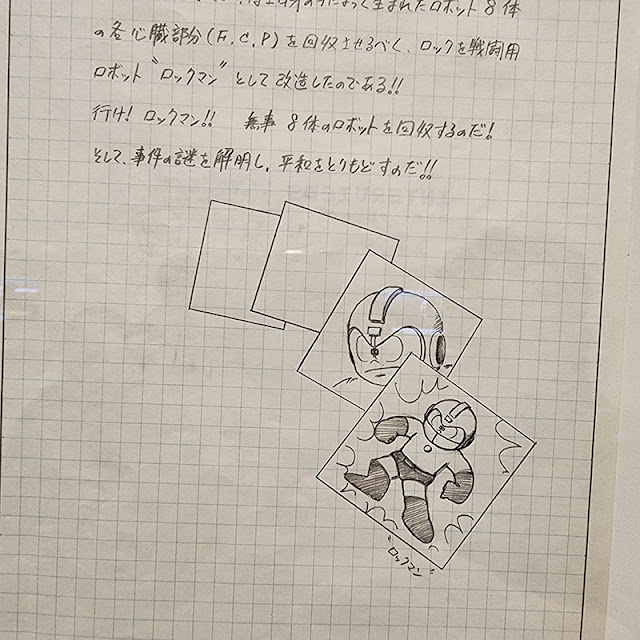 生まれたロボット 8体
の各心臓部分(F.C.P)を回収させるべく、ロックを戦闘用
ロボット〝ロックマン〟として改造したのである!!
行け! ロックマン!! 無事 8体のロボットを回収するのだ!
そして、事件の謎を解明し、平和をとりもどすのだ!!
〝ロックマン〟